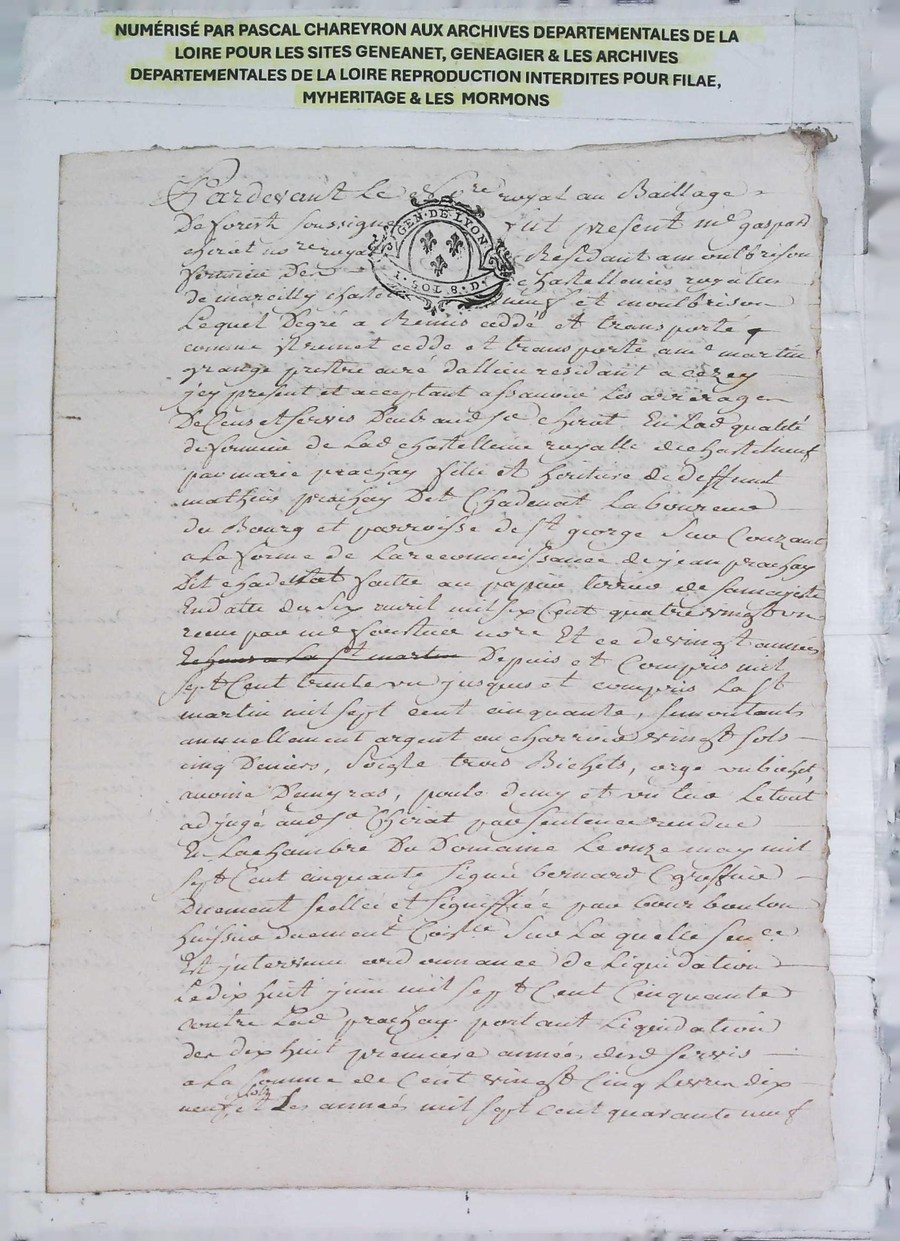 NUMÉRISÉ PAR PASCAL CHAREYRON AUX ARCHIVES DEPARTEMENTALES DE LA
LOIRE POUR LES SITES GENEANET, GENEAGIER & LES ARCHIVES
DEPARTEMENTALES DE LA LOIRE REPRODUCTION INTERDITES POUR FILAE,
MYHERITAGE & LES MORMONS
Pardevant Le royal au Baillage
De forest soussigné fut present me gaspard
chirat nore royal Residant a montbrison
fermier des chastellenies royalles
de marcilly chatel et montbrison
GEN·DE·LYON
1·SOL 8·D
Lequel Degré a Remis ceddé et transporté
comme Il remet cedde et transporte a me martin
grange prestre curé dallieu residant a cezey
jcy present et acceptant assavoir Les arrerages
De Cens et servis Deubs aud sr chirat En Lad qualité
de fermier de Lad chastellenie royalle de chastelneuf
par marie prachay fille et heritiere de deffunt
mathieu prachay Dit Chadenat Laboureur
du Bourg et parroisse de st george Sur Couzant
a La forme de La reconnoissance de jean prachay
Dit chadenat faitte au papier terrier de sa majesté
En datte du Six avril mil six Cent quatre vingt un
receu par me nore Et ce de vingt années
Depuis et Compris mil
sept Cent trente un jusques et compris La st
martin mil sept cent cinquante, se montants
annuellement argent ou charroix vingt sols
cinq Deniers, Seigle trois Bichets, orge un bichet
avoine Deux ras, poule demy et un tiers Le tout
adjugé aud sr Chirat par sentence rendue
En La chambre Du Domaine Le onze may mil
sept Cent cinquante Signé bernard Greffier
Duement scellée et signiffiée par bourboulon
huissier duement Contlé Sur La quelle senc̃e
Est jntervenu ordonnance de Liquidation
Le dix huit juin mil sept Cent Cinquante
contre Lad prachay portant Liquidation
des dix huit premiere années desd servis
a La somme de Cent vingt Cinq Livres dix
neuf sols et Les années mil sept cent quarante neuf